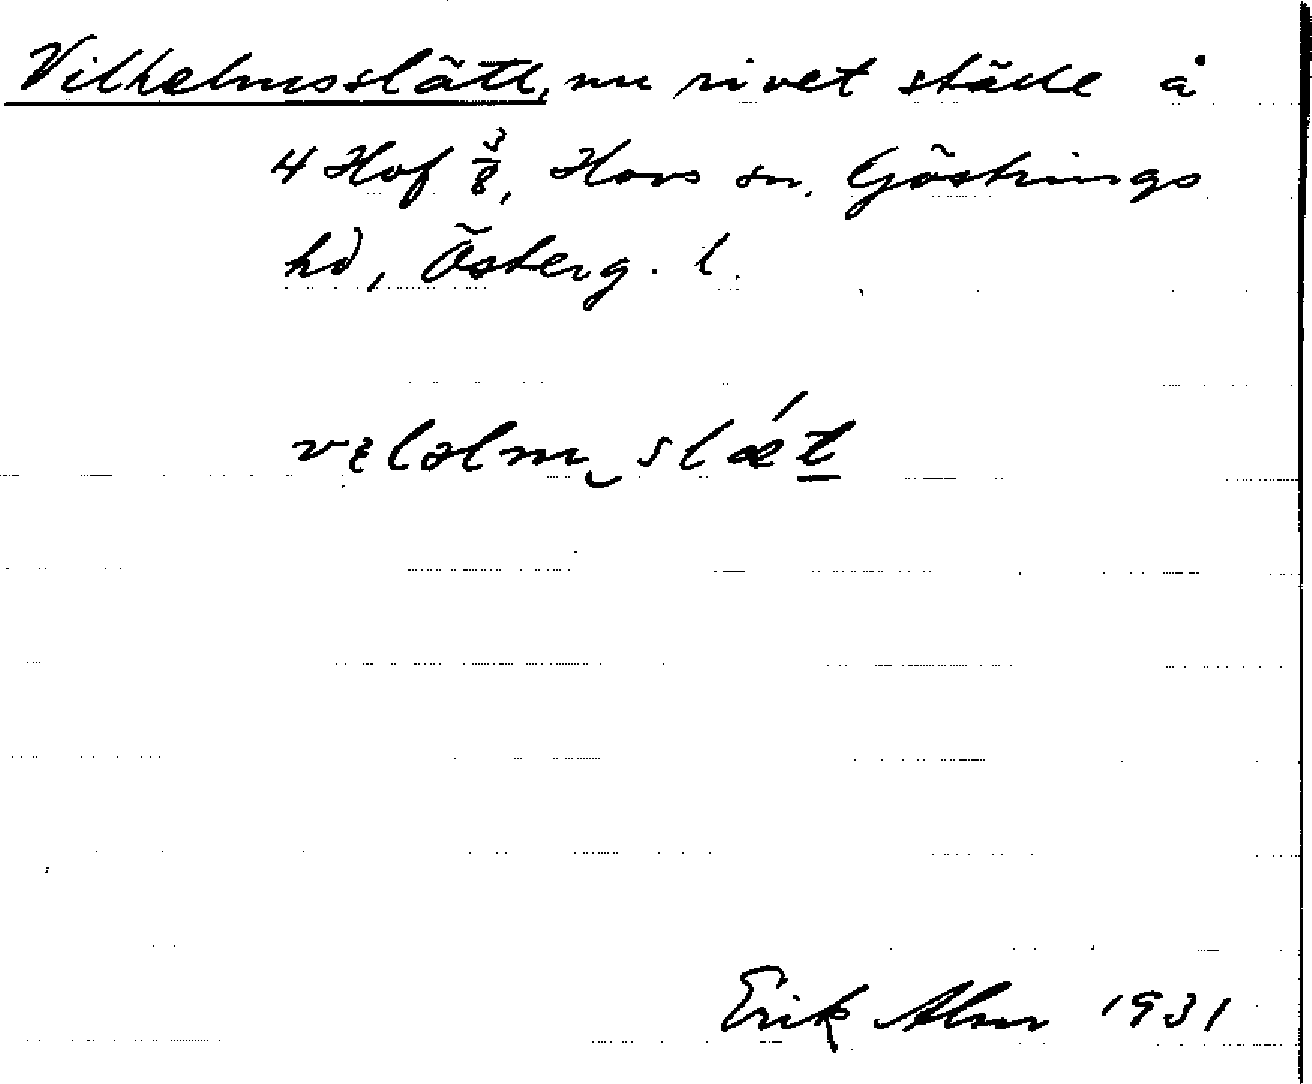 Vilhelmsslätt, nu rivet ställe å
4 Hof 3/8, Hovs sn. Göstrings
hd, Österg. l.
vɛləlm‿slǽt
Erik Alm 1931